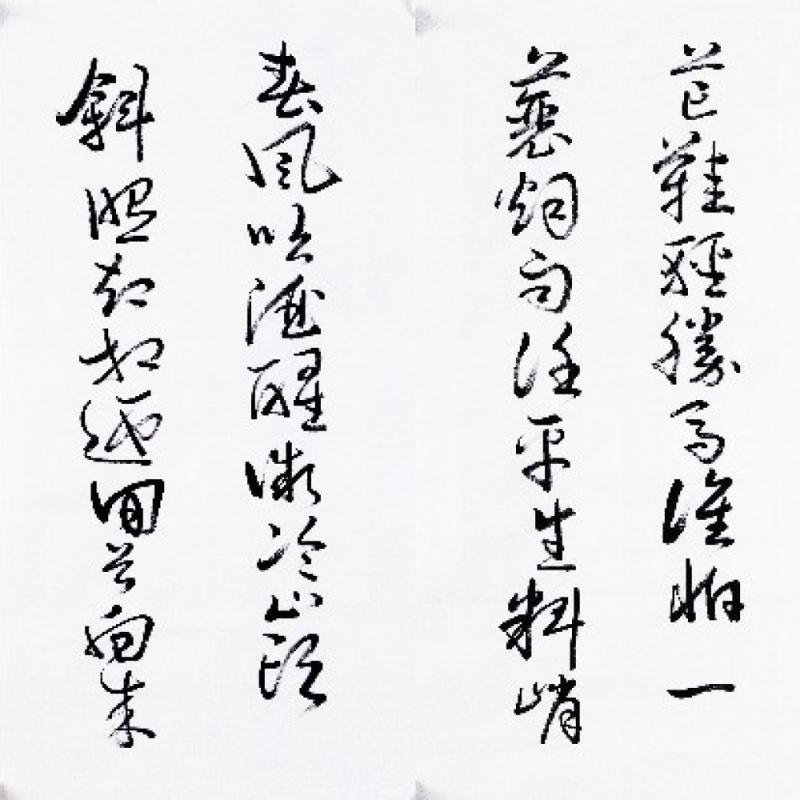 芒鞋輕勝馬誰怕一
蓑烟雨任平生料峭
春風吹酒醒微冷山頭
斜照却相迎回首向来